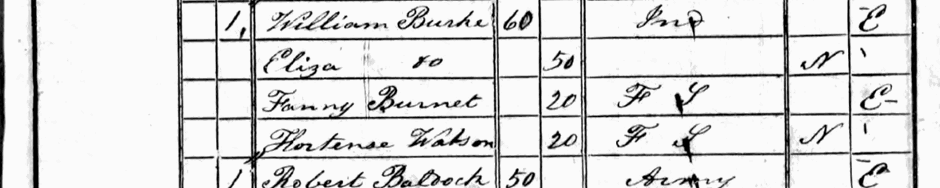 1, William Burke 60 Ind E
Eliza do 50 N '
Fanny Burnet 20 F S E-
Hortense Watson 20 F S N '
1 Robert Baldock 50 Army E